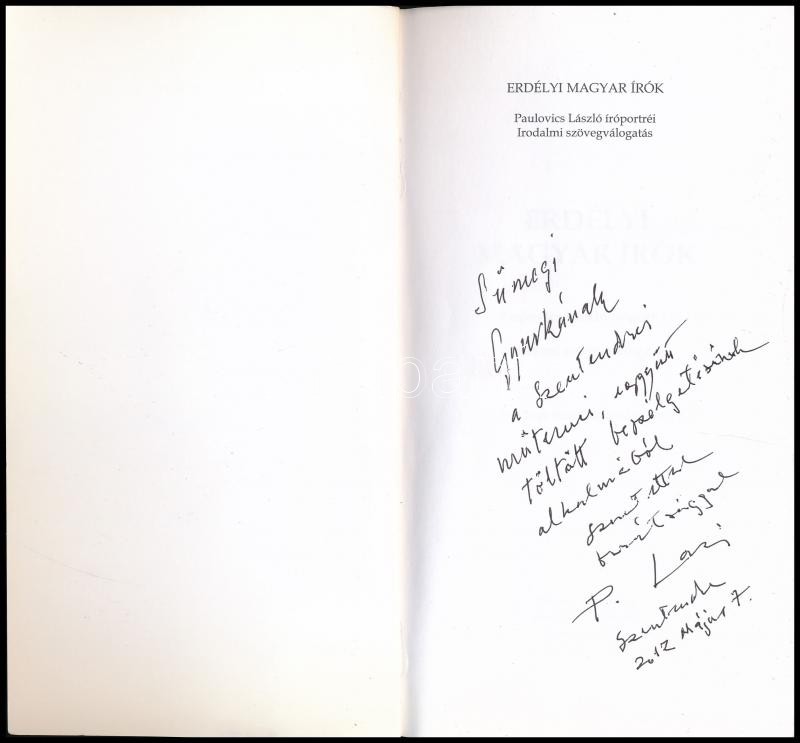 ERDÉLYI MAGYAR ÍRÓK
Paulovics László íróportréi
Irodalmi szövegválogatás
ERDÉLYI
MAGYAR ÍRÓK
Sümegi
Gyurkának
a Szentendrei
műtermi, együtt
töltött beszélgetésünk
alkalmából
szeretettel
barátsággal
P. Laci
Szentendre
2012 május 7.